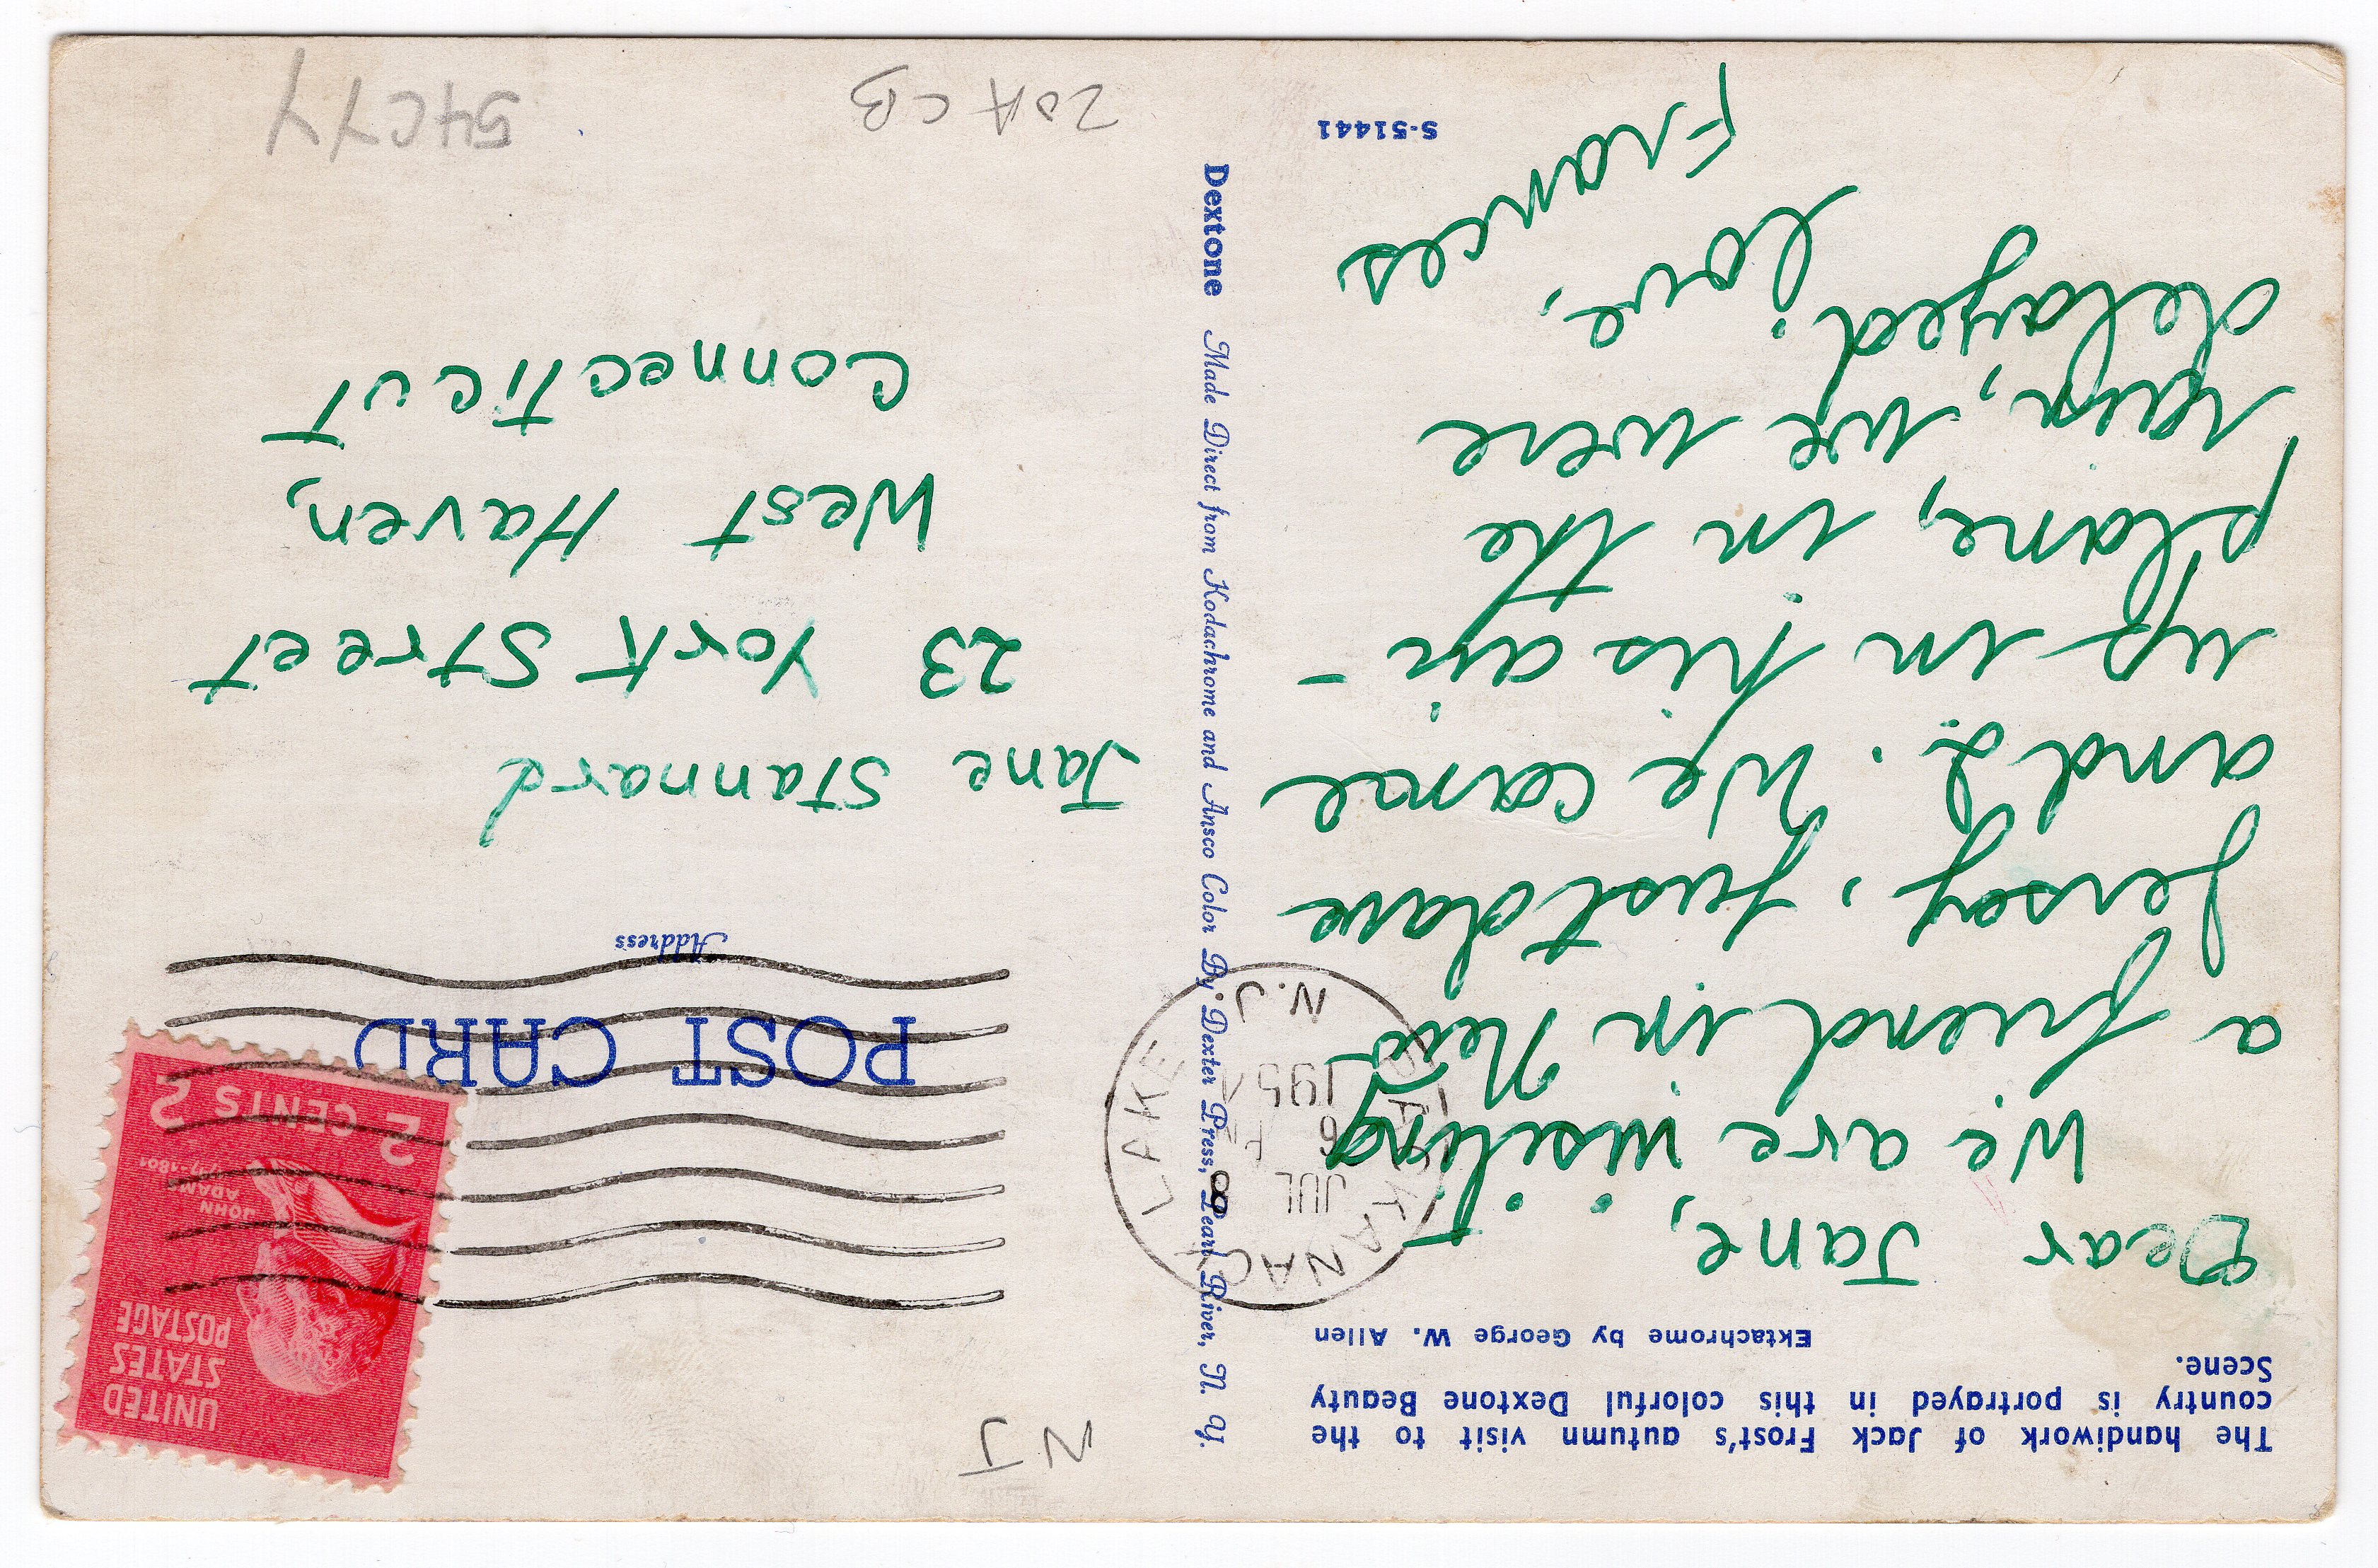 The handiwork of Jack Frost's autumn visit to the
country is portrayed in this colorful Dextone Beauty
Scene.
Ektachrome by George W. Allen
Dear Jane,
We are visiting
a friend in New
Jersey, just dave
and I. We came
up in his air-
plane, in the
rain, we were
delayed! love,
Frances
S-51441
Dextone Made Direct from Kodachrome and Ansco Color By Dexter Press, Pearl River, N. Y.
NJ
UNITED
STATES
POSTAGE
JOHN
ADAMS
1797-1801
2 CENTS 2
LAKE
N.J.
JUL 8
6
195
POST CARD
Address
Jane Stannard
23 York Street
West Haven,
Connecticut
20A CB